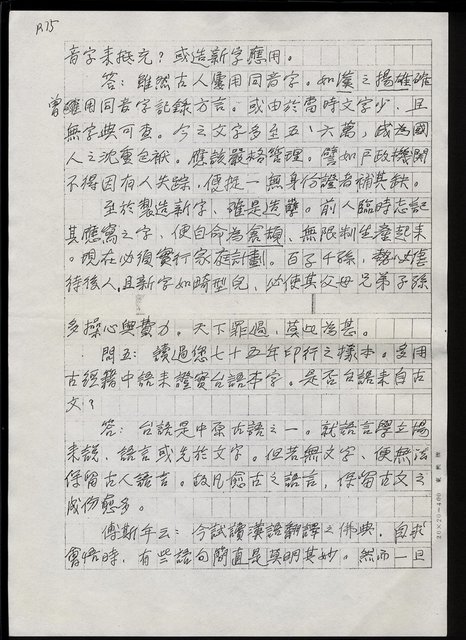 P.75
音字來抵充？或造新字應用。
答：雖然古人屢用同音字。如漢之揚雄確
曾雖用同音字記錄方言。或由於當時文字少、且
無字典可查。今之文字多至五、六萬，成為國
人之沈重包袱。應該嚴格管理。譬如戶政機關
不得因有人失踪，便捉一無身份證者補其缺。
至於製造新字，雖是造孽。前人臨時忘記
其應寫之字，便自命為倉頡、無限制生產起來
。現在必須實行家庭計劃。百子千孫，勢必遺
待後人，且新字如畸型兒，必使其父母兄弟子孫
多操心與費力。天下罪過，莫此為甚。
問五：讀過您七十五年印行之樣本。多用
古經籍中語來證實台語本字。是否台語來自古
文？
答：台語是中原古語之一。就語言學立場
來談，語言或先於文字。但若無文字，便無法
保留古人語言。故凡愈古之語言，保留古文之
成份愈多。
傅斯年云：今試讀漢語翻譯之佛典，自求
會悟時，有些語句簡直是莫明其妙。然而一旦
20×20=400